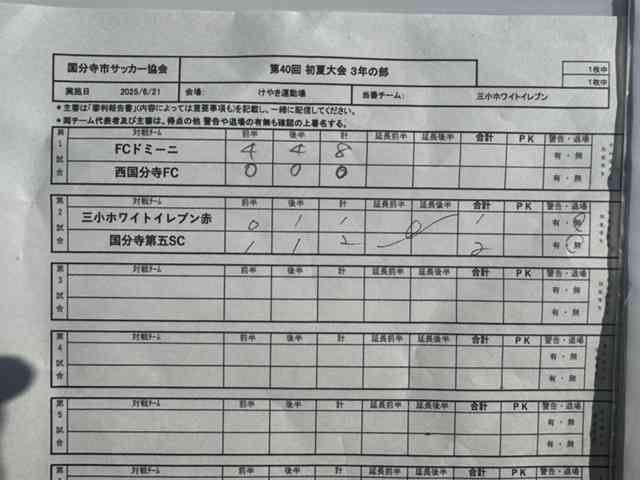 国分寺市サッカー協会 第40回 初夏大会 3年の部 1枚中
1枚中
実施日 2025/6/21 会場: けやき運動場 当番チーム: 三小ホワイトイレブン
*主審は「審判報告書」(内容によっては重要事項も)を記載し、一緒に配信してください。
*両チーム代表者及び主審は、得点の他 警告や退場の有無も確認の上署名する。
第1試合 対戦チーム 前半 後半 計 延長前半 延長後半 合計 PK 警告・退場
FCドミーニ 4 4 8 有・無
西国分寺FC 0 0 0 有・無
第2試合 対戦チーム 前半 後半 計 延長前半 延長後半 合計 PK 警告・退場
三小ホワイトイレブン赤 0 1 1 1 有・無
国分寺第五SC 1 1 2 2 有・無
第3試合 対戦チーム 前半 後半 計 延長前半 延長後半 合計 PK 警告・退場
有・無
有・無
第4試合 対戦チーム 前半 後半 計 延長前半 延長後半 合計 PK 警告・退場
有・無
有・無
第5試合 対戦チーム 前半 後半 計 延長前半 延長後半 合計 PK 警告・退場
有・無
有・無
対戦チーム 前半 後半 計 延長前半 延長後半 合計 PK 警告・退場